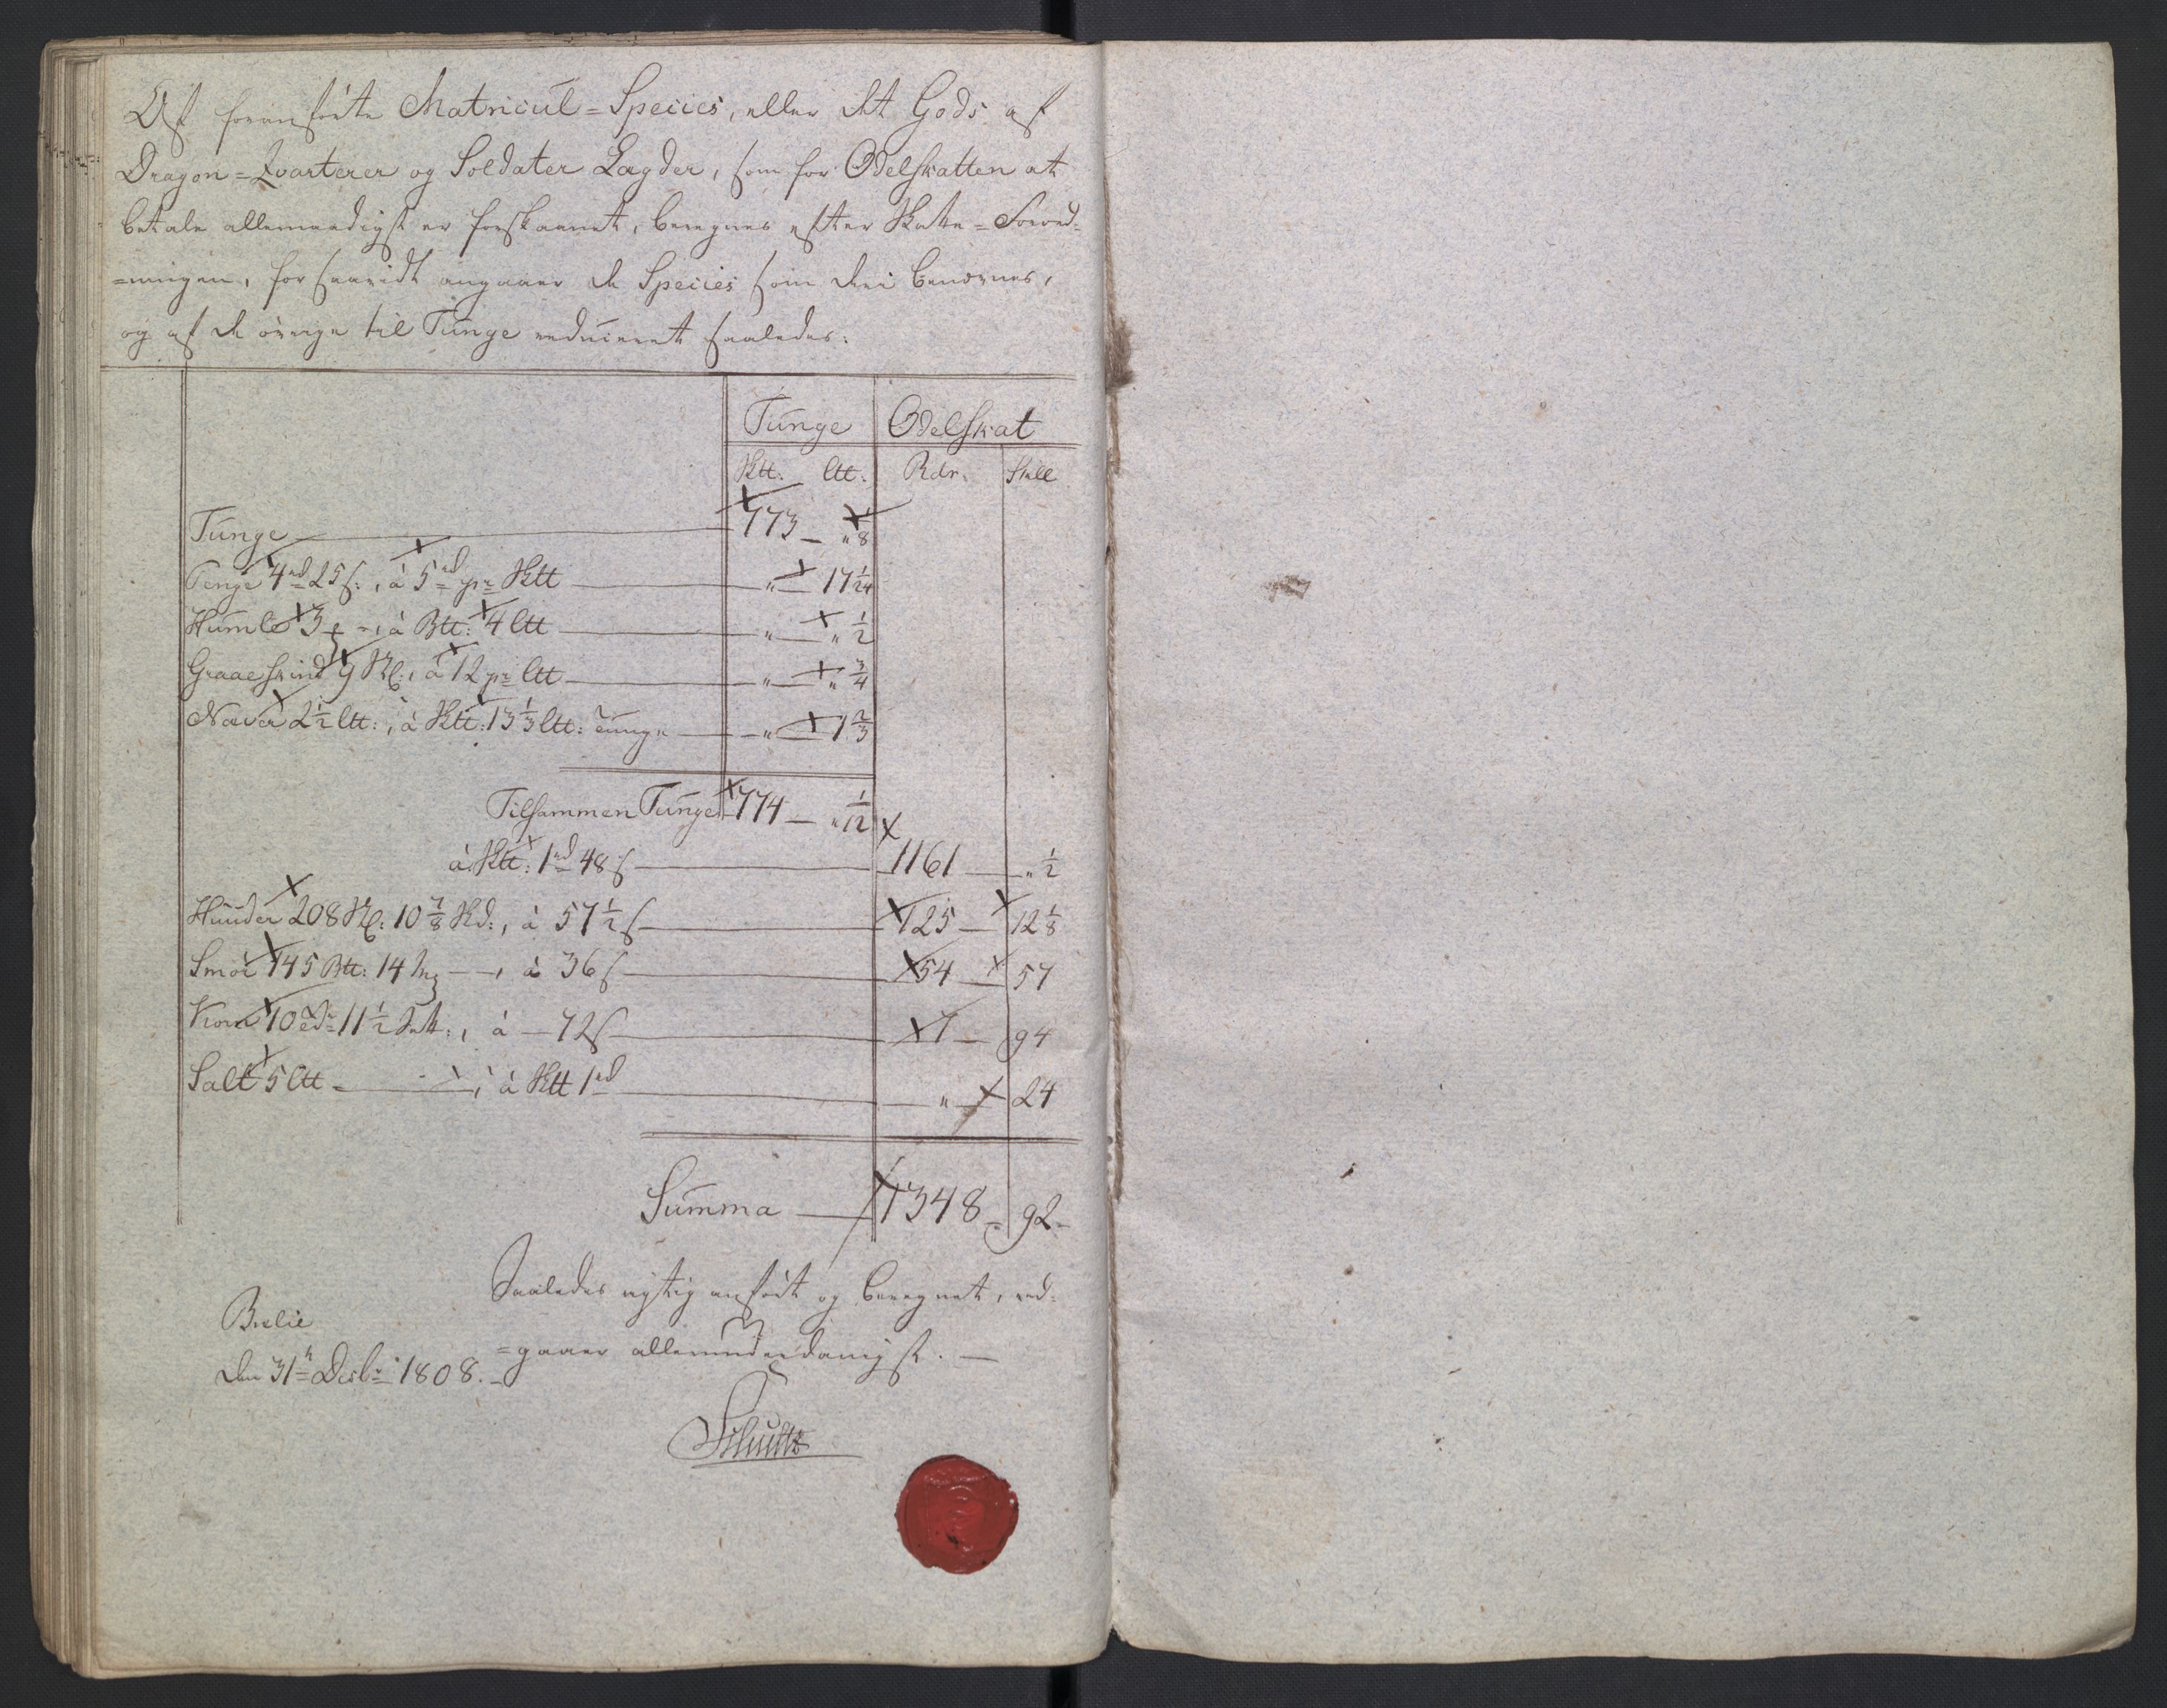 Af foranførte Matricul=Species, eller det Gods af
Dragon=Qvarterer og Soldater Lægder, som for Odelskatten at
betale allernaadigst er forskaanet, beregnes efter Skatte=Forord=
=ningen, for saavidt angaaer de Species som deri benævnes,
og af de øvrige til Tunge reduceret saaledes:
Tunge Odelskat
Htt. Ltt. Rdr. Skill
Tunge 773 „ 1/8
Penge 4 rd 25 s:, à 5 rd pr Htt „ 17 1/24
Humle 3 à Btt: 4 Ltt „ „ 1/2
Graaeskind 9 St:, à 12 pr Ltt „ „ 3/4
Næver 2 1/2 Ltt:, à Htt: 13 1/3 Ltt: Tunge „ 1 2/3
Tilsammen Tunge 774 „ 1/12
à Htt: 1 rd 48 s 1161 „ 1/2
Huuder 208 10 7/8 à 57 1/2 s 125 12 1/8
Smør 145 Btt: 14 à 36 s 54 57
Korn 10 11 1/2 à 72 s 7 94
Salt 5 Ltt à Htt 1 rd „ 24
Summa 1348 92
Saaledes rigtig anført og beregnet, ved=
=gaaer allerunderdanigst.
Brelie
den 31te Decbr 1808.
Schultz